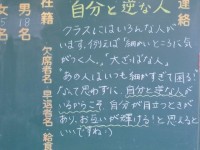 自分と逆な人
クラスにはいろんな人が
います。例えば"細かいところに気
がつく人。""大ざっぱな人。"
"あの人はいつも細かすぎて困る"
なんて思わずに、自分と逆な人が
いるからこそ、自分が目立つときが
あり、お互いが輝ける!と思えると
いいですね:)
連絡
在籍
男18名
女15名
欠席者名
早退者名
給食